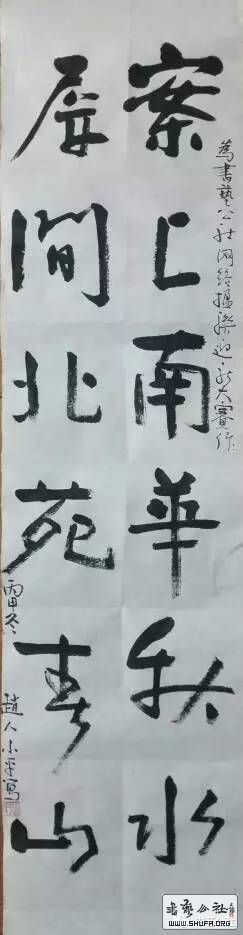 為書藝公社网络楹聯迎新大賽作
案上南華秋水
屏間北苑春山
丙申冬 趙人小平寫
书艺公社
WWW.SHUFA.ORG